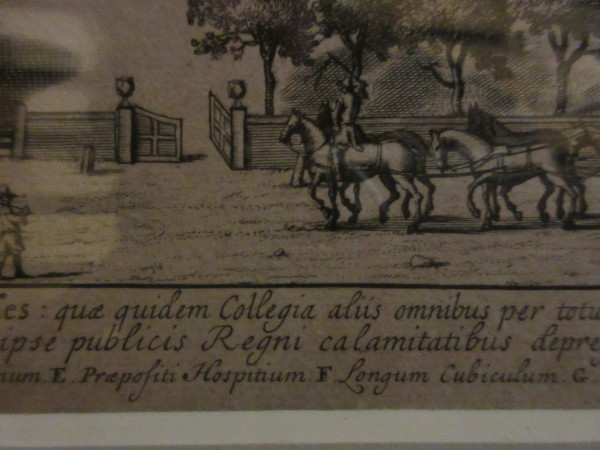 es : quæ quidem Collegia aliis omnibus per totu
ipse publicis Regni calamitatibus depre
ium. E. Præpoſiti Hoſpitium. F. Longum Cubiculum. G.